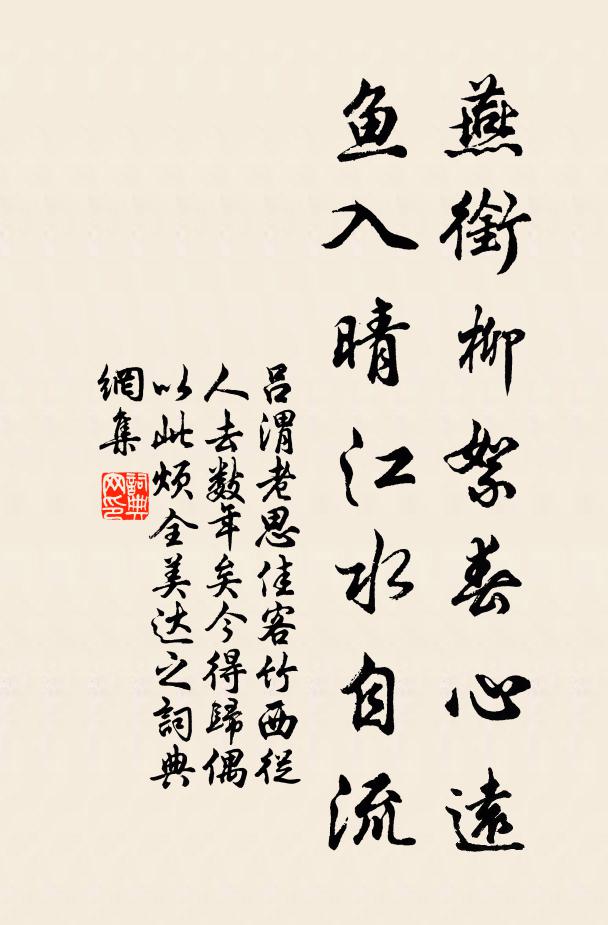 燕銜柳絮春心遠
鱼入晴江水自流
吕渭老思佳客竹西從
人去数年矣今得歸偶
以此烦全美达之詞典
網集
詞典
网印